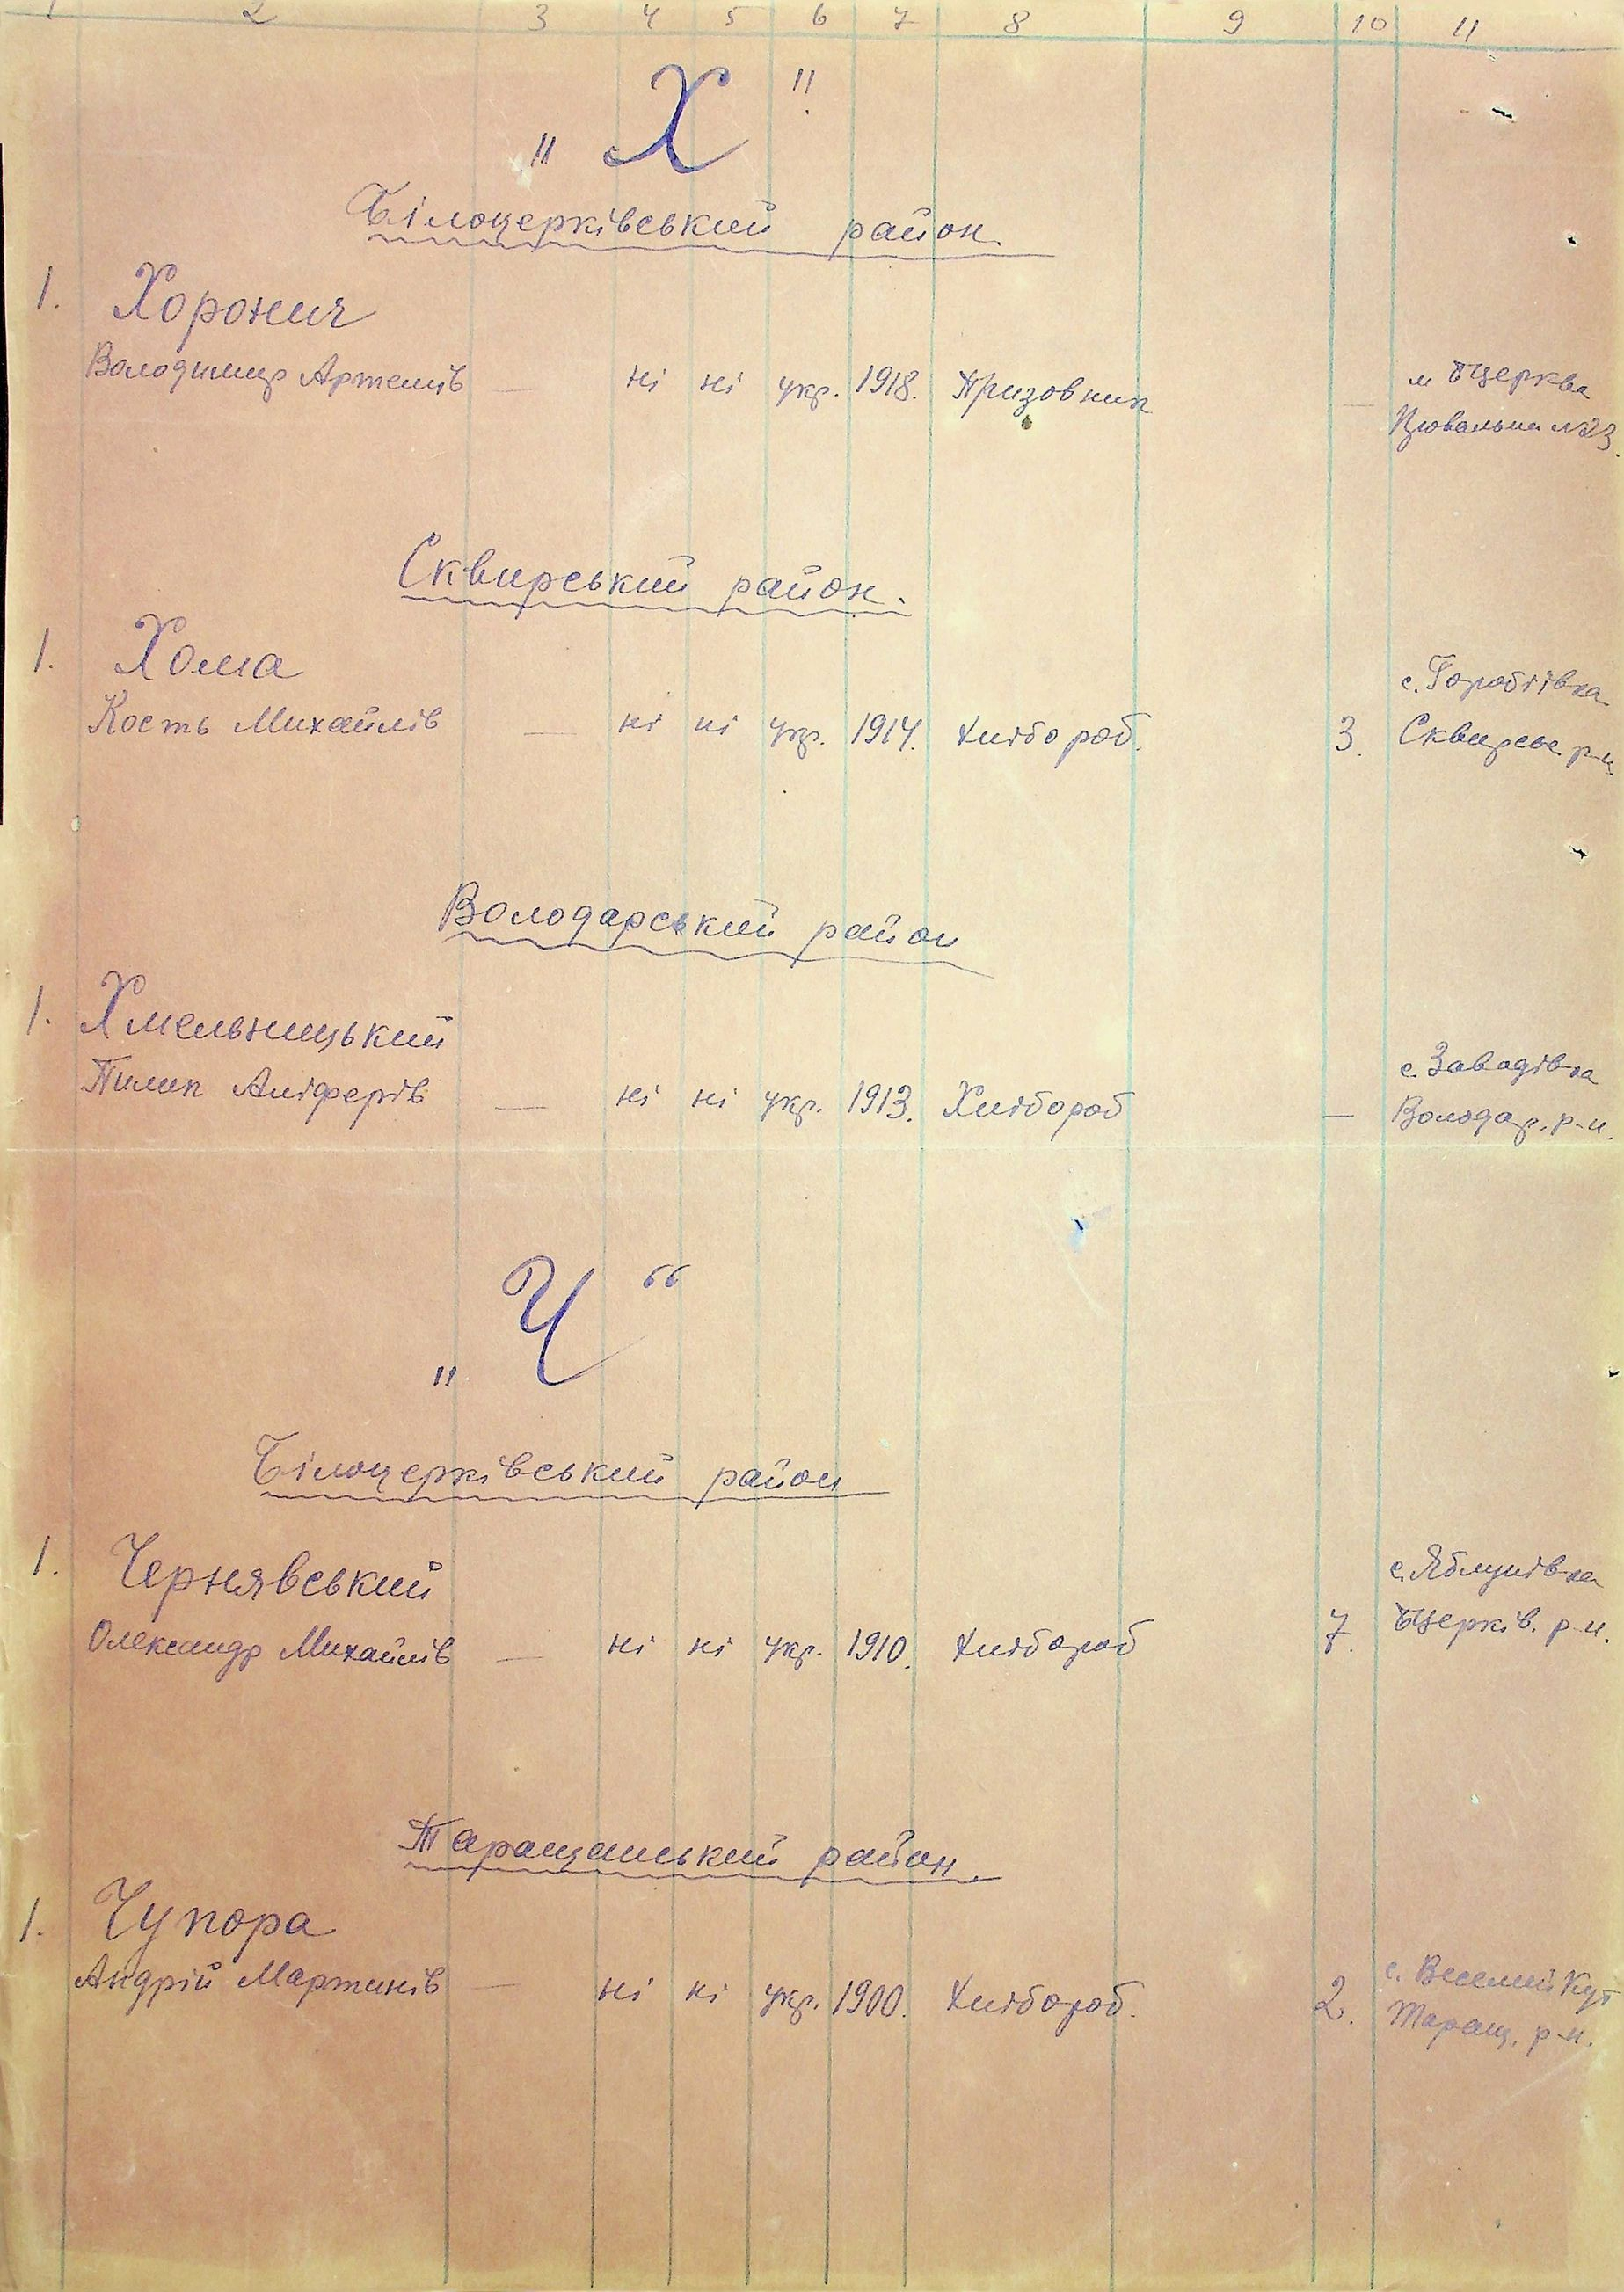 1 2 3 4 5 6 7 8 9 10 11
„Х"
Білоцерківський район.
1. Хоронич
Володимир Артемів — ні ні укр. 1918. Призовник — м Бцерква
№23.
Сквирський район.
1. Хома
с. Горобіївка
Кость Михайлів — ні ні укр. 1914. Хлібороб. 3. Сквирськ р-н
Володарський район
1. Хмельницький
с. Завадівка
Пилип Аліферів — ні ні укр. 1913. Хлібороб — Володар. р-н.
„Ч“
Білоцерківський район
1. Чернявський
с. Яблунівка
Олександр Михайлів — ні ні укр. 1910. Хлібороб 7. Бцерків. р-н.
Таращанський район.
1. Чупора
с. Веселий Кут
Андрій Мартинів — ні ні укр. 1900. Хлібороб. 2. Таращ. р-н.